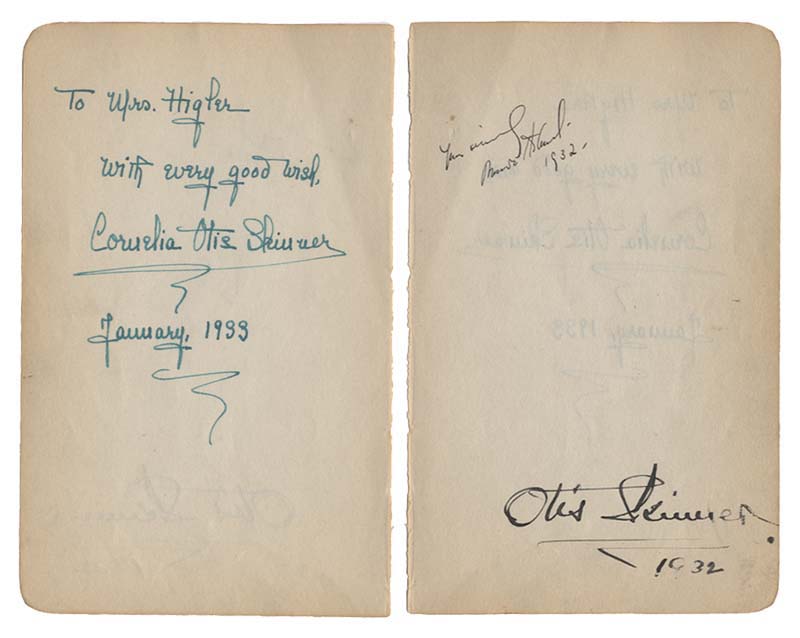 To Mrs. Higler
with every good wish,
Cornelia Otis Skinner
January, 1933
1932.
Otis Skinner.
1932